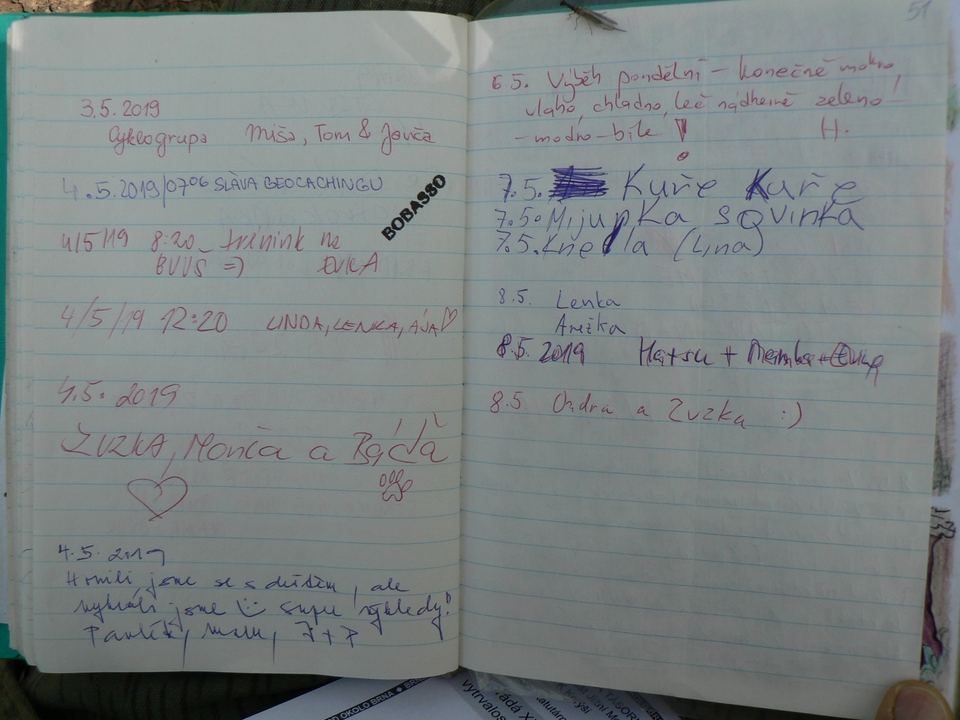 3.5.2019
Cyklogrupa Míša, Tom & Jovča
4.5.2019/07⁰⁶ SLÁVA GEOCACHINGU
BOBASSO
4/5/19 8:20 trénink na
BVVŠ =) EVKA
4/5/19 12:20 LINDA, LENKA, ÁJA♡
4.5.2019
ZUZKA, Monča a Báďa
4.5.2019
Honili jsme se s deštěm, ale
vyhráli jsme super výhledy!
7+7
51
6 5. Výběh pondělní – konečně mokro,
vlaho, chladno, leč nádherně zeleno-
-modro-bíle! H.
7.5. Kuře Kuře
7.5. Mijupka sqvinka
7.5. (Lina)
8.5. Lenka
Anežka
8.5. 2019 Hatsu +
8.5 Ondra a Zuzka :)
OKOLO BRNA
vytrvalos